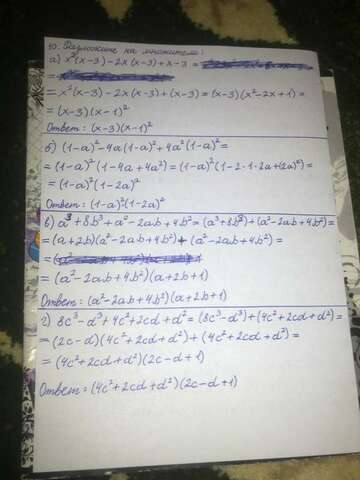 10. Разложите на множители:
а) x²(x-3)-2x(x-3)+x-3=
=
= x²(x-3)-2x(x-3)+(x-3)=(x-3)(x²-2x+1)=
=(x-3)(x-1)²
Ответ: (x-3)(x-1)²
б) (1-a)²-4a(1-a)²+4a²(1-a)²=
=(1-a)²(1-4a+4a²)=(1-a)²(1-2·1·2a+(2a)²)=
=(1-a)²(1-2a)²
Ответ: (1-a)²(1-2a)²
в) a³+8b³+a²-2ab+4b²=(a³+8b³)+(a²-2ab+4b²)=
=(a+2b)(a²-2ab+4b²)+(a²-2ab+4b²)=
=
=(a²-2ab+4b²)(a+2b+1)
Ответ: (a²-2ab+4b²)(a+2b+1)
г) 8c³-d³+4c²+2cd+d²=(8c³-d³)+(4c²+2cd+d²)=
=(2c-d)(4c²+2cd+d²)+(4c²+2cd+d²)=
=(4c²+2cd+d²)(2c-d+1)
Ответ: (4c²+2cd+d²)(2c-d+1)